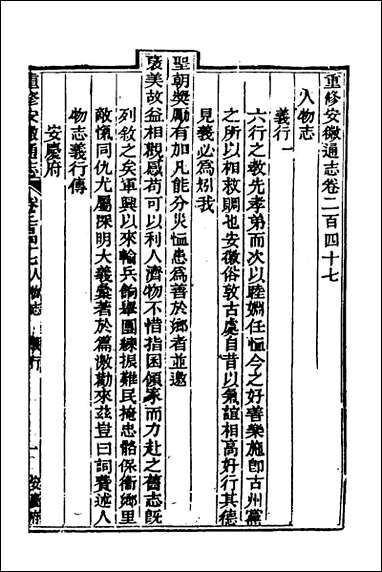 重修安徽通志卷二百四十七
人物志
義行一
六行之敎先孝弟而次以睦婣任恤今之好善樂施卽古州黨
之所以相救賙也安徽俗敦古處自昔以氣誼相高好行其德
見義必爲矧我
聖朝奬勵有加凡能分災恤患爲善於鄉者並邀
褒美故益相觀感苟可以利人濟物不惜指囷傾家而力赴之舊志旣
列敘之矣軍興以來輸兵餉舉團練振難民掩忠骼保衛鄉里
敵愾同仇尤屬深明大義彙著於篇激勸來茲豈曰詞費述人
物志義行傳
安慶府
重修安徽通志
卷二百四十七人物志
義行
一
安慶府